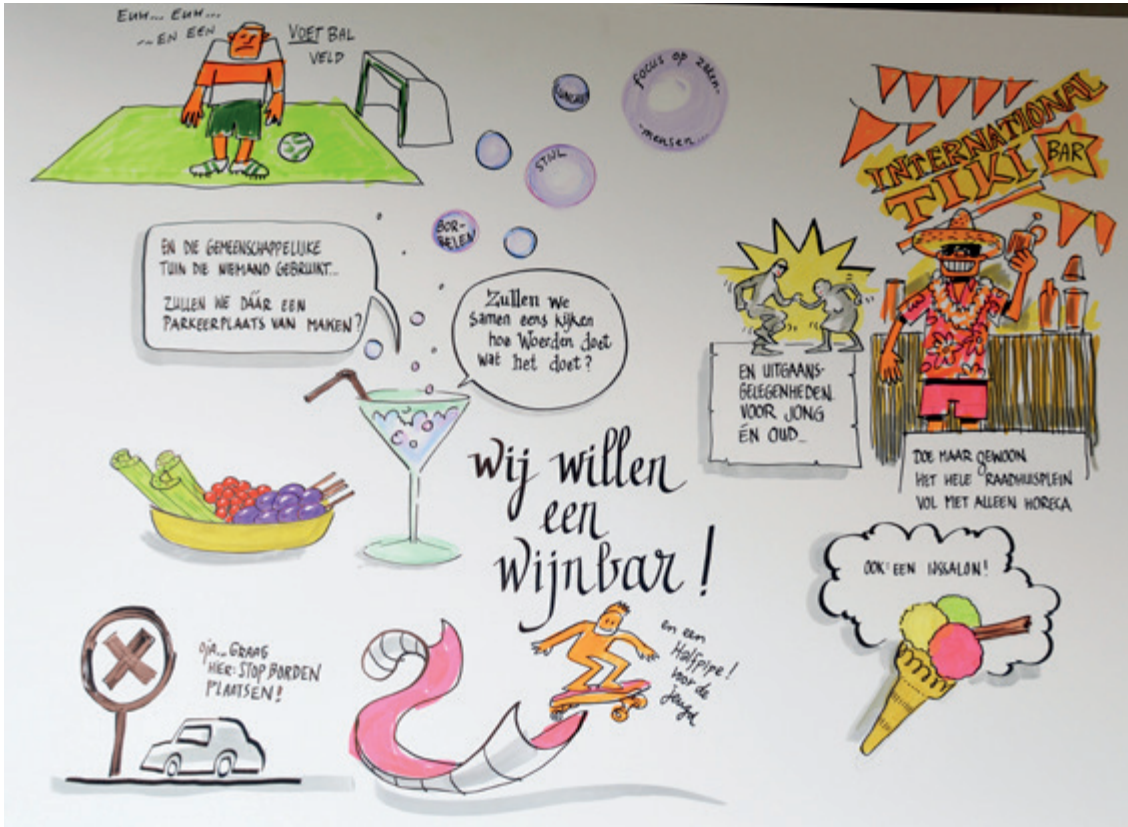 EUH... EUH...
...EN EEN
VOETBAL
VELD
focus op zaken-
-mensen...
LUNCHEN
STIJL
BOR-
RELEN
INTERNATIONAL
TIKI
BAR
EN DIE GEMEENSCHAPPELIJKE
TUIN DIE NIEMAND GEBRUIKT...
ZULLEN WE DÁÁR EEN
PARKEERPLAATS VAN MAKEN?
Zullen we
samen eens kijken
hoe Woerden doet
wat het doet?
EN UITGAANS-
GELEGENHEDEN
VOOR JONG
ÉN OUD...
DOE MAAR GEWOON
HET HELE RAADHUISPLEIN
VOL MET ALLEEN HORECA
wij willen
een
wijnbar!
OOK: EEN IJSSALON!
oja... GRAAG
HIER: STOPBORDEN
PLAATSEN!
en een
Halfpipe!
voor de
jeugd